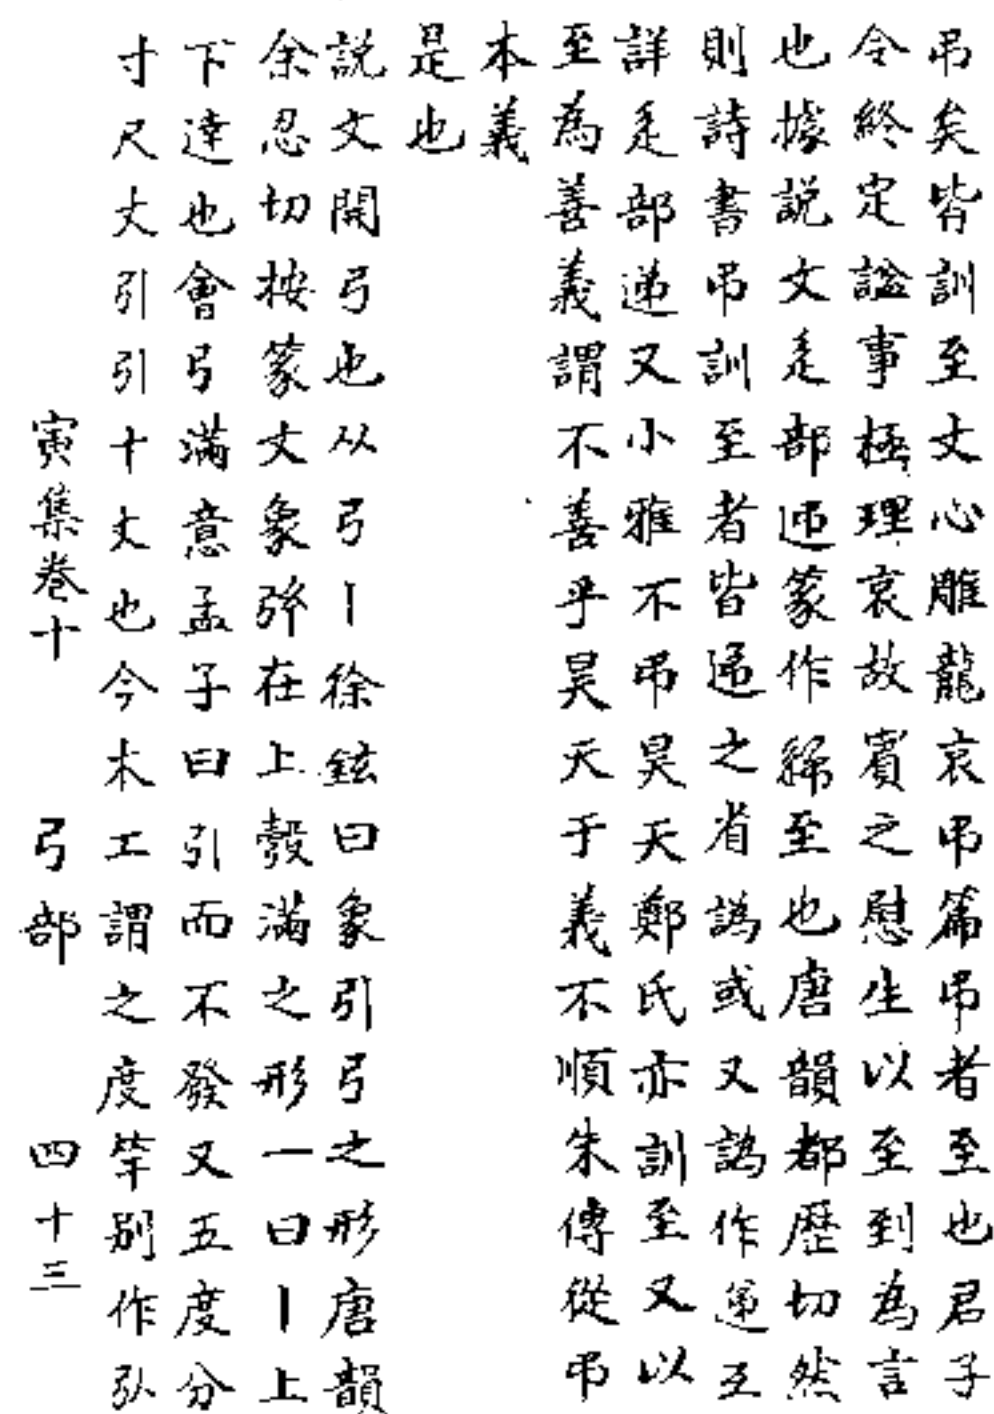 吊矣皆訓至文心雕龍哀吊篇吊者至也君子
令終定謚事極理哀故賓之慰生以至到為言
也據説文辵部迊篆作綈至也唐韻都歷切然
則詩書吊訓至者皆逓之省譌或又譌作運互
詳辵部递又小雅不吊昊天鄭氏亦訓至又以
至為善義謂不善乎昊天于義不順朱傳從吊
本義
是也
説文開弓也从弓丨徐鉉曰象引弓之形唐韻
余忍切按篆文象弨在上彀滿之形一曰丨上
下達也會弓滿意孟子曰引而不發又五度分
寸尺丈引引十丈也今木工謂之度竿別作弘
寅集卷十 弓部 四十三